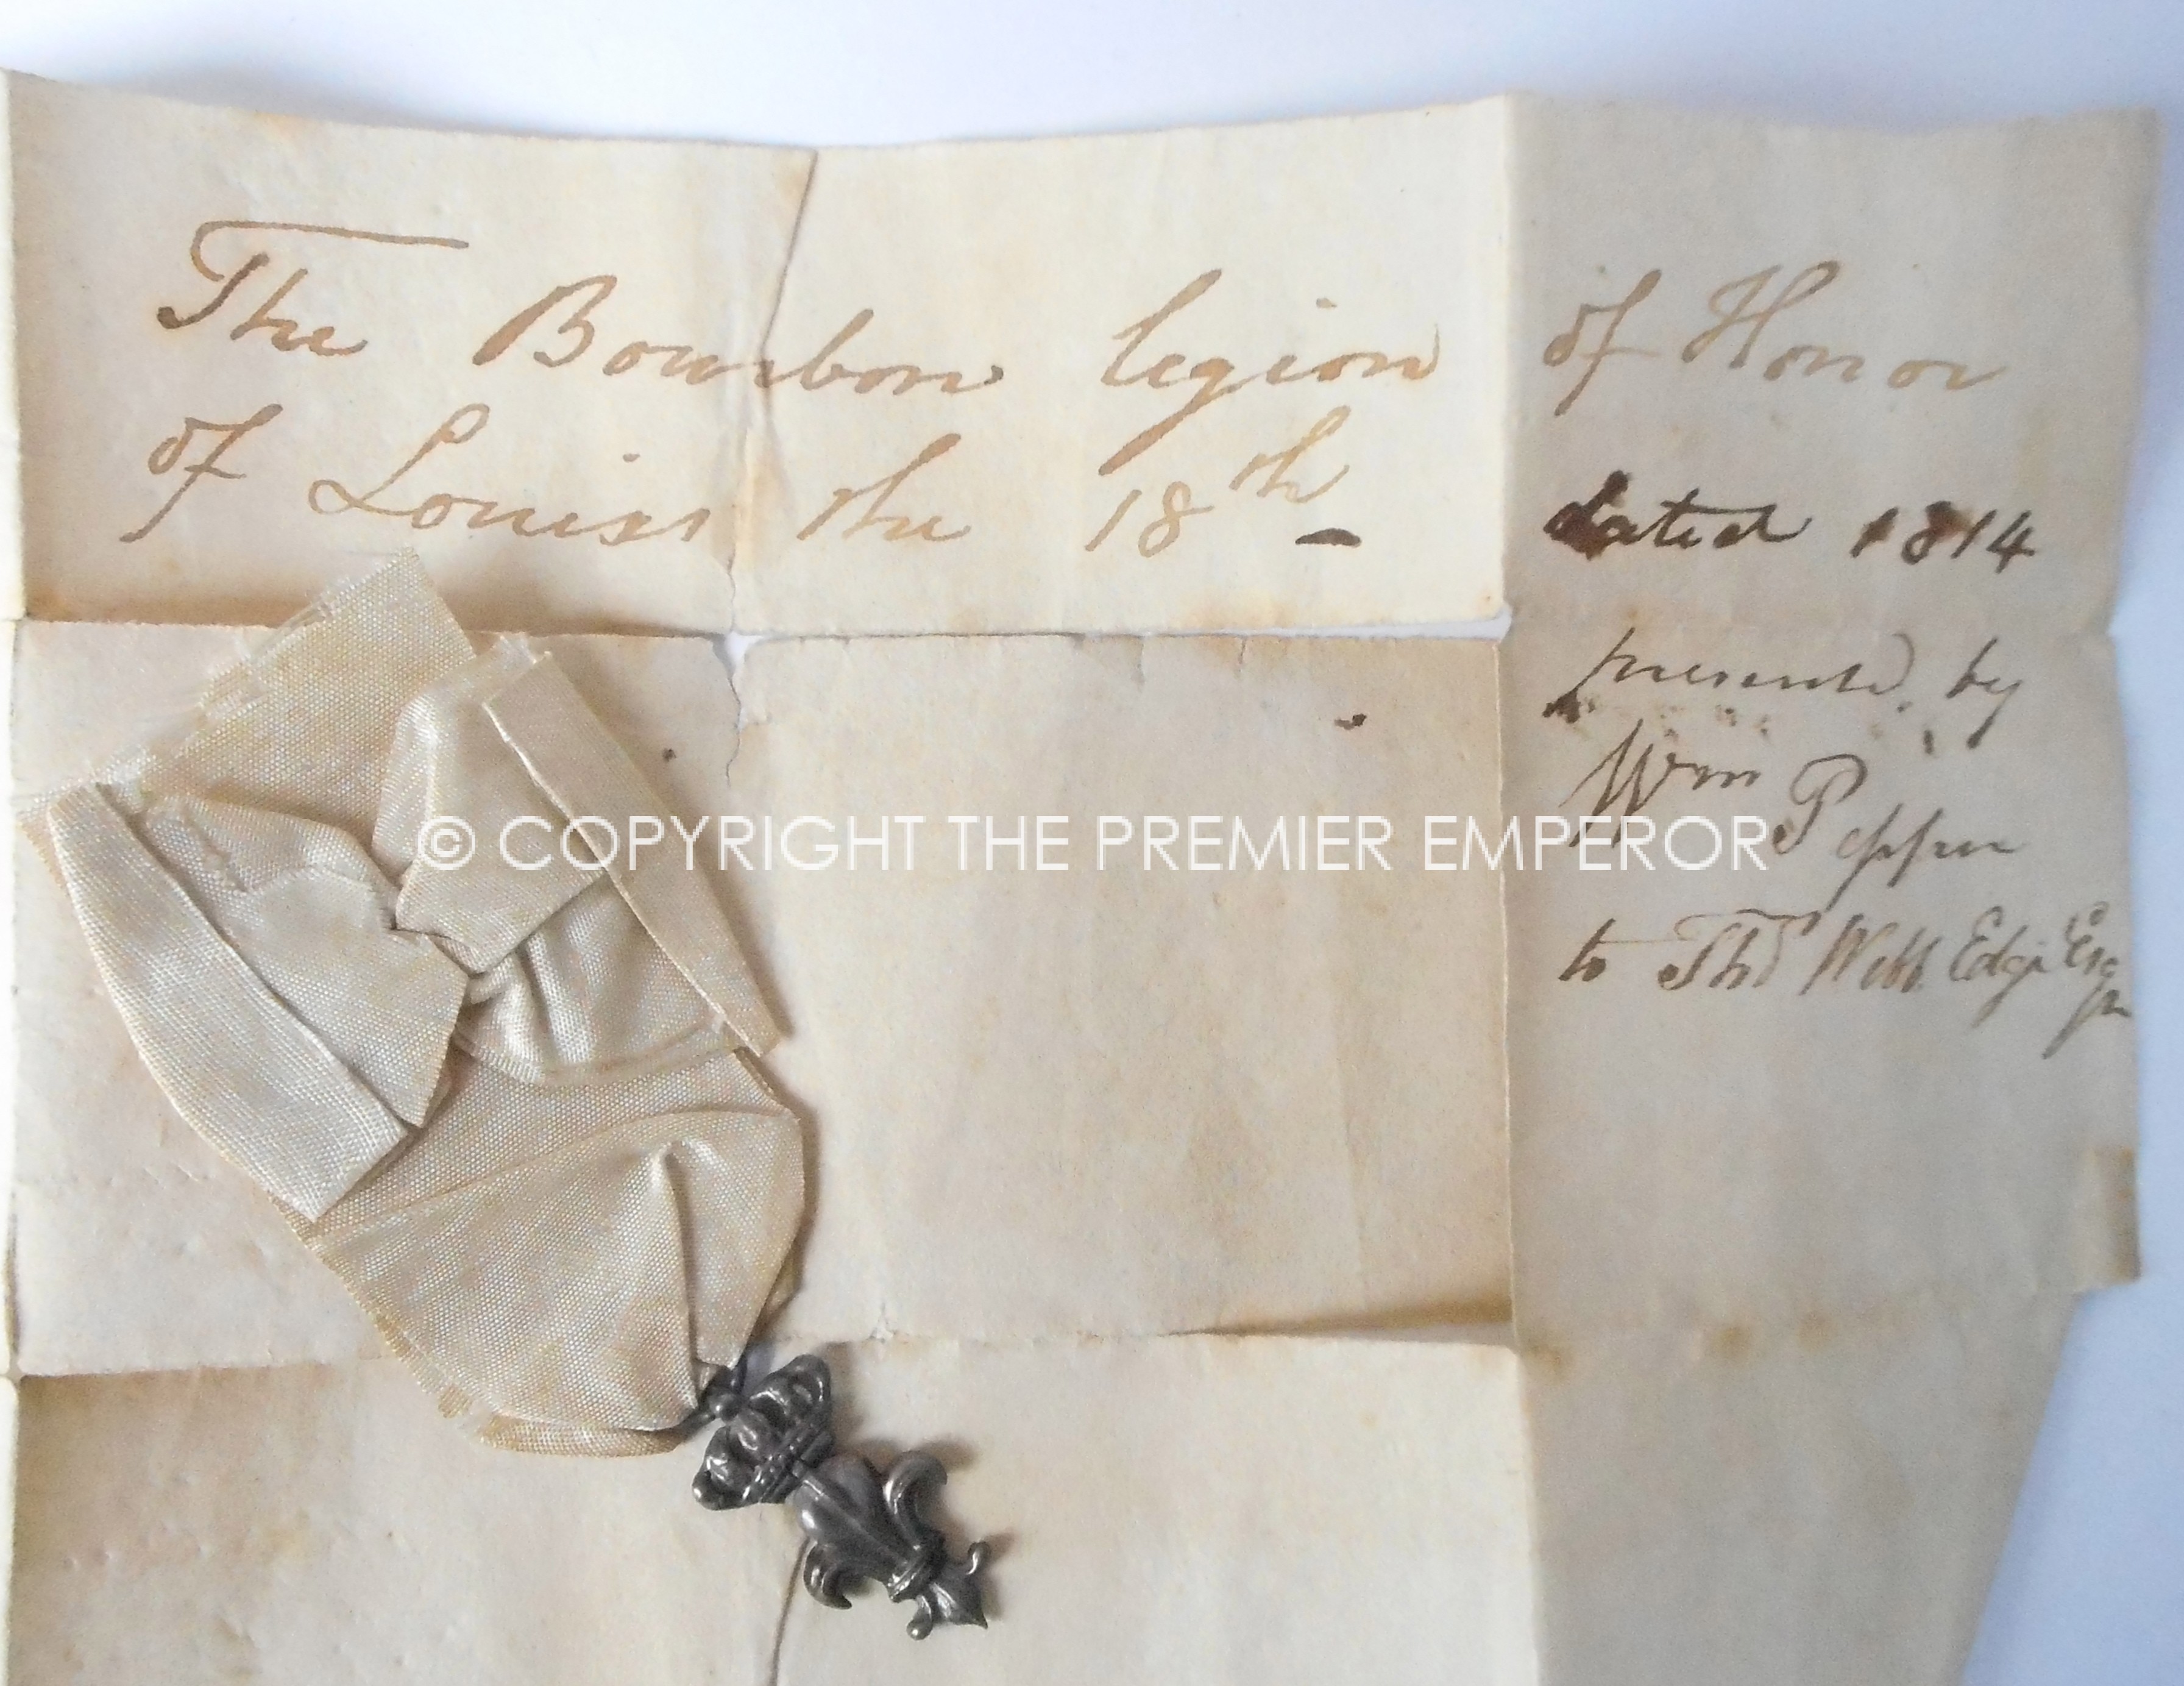 The Bourbon legion of Honor
of Louiss the 18th - dated 1814
presented by
Wm Pepper
to Thos Webb Edge Esq
© COPYRIGHT THE PREMIER EMPEROR